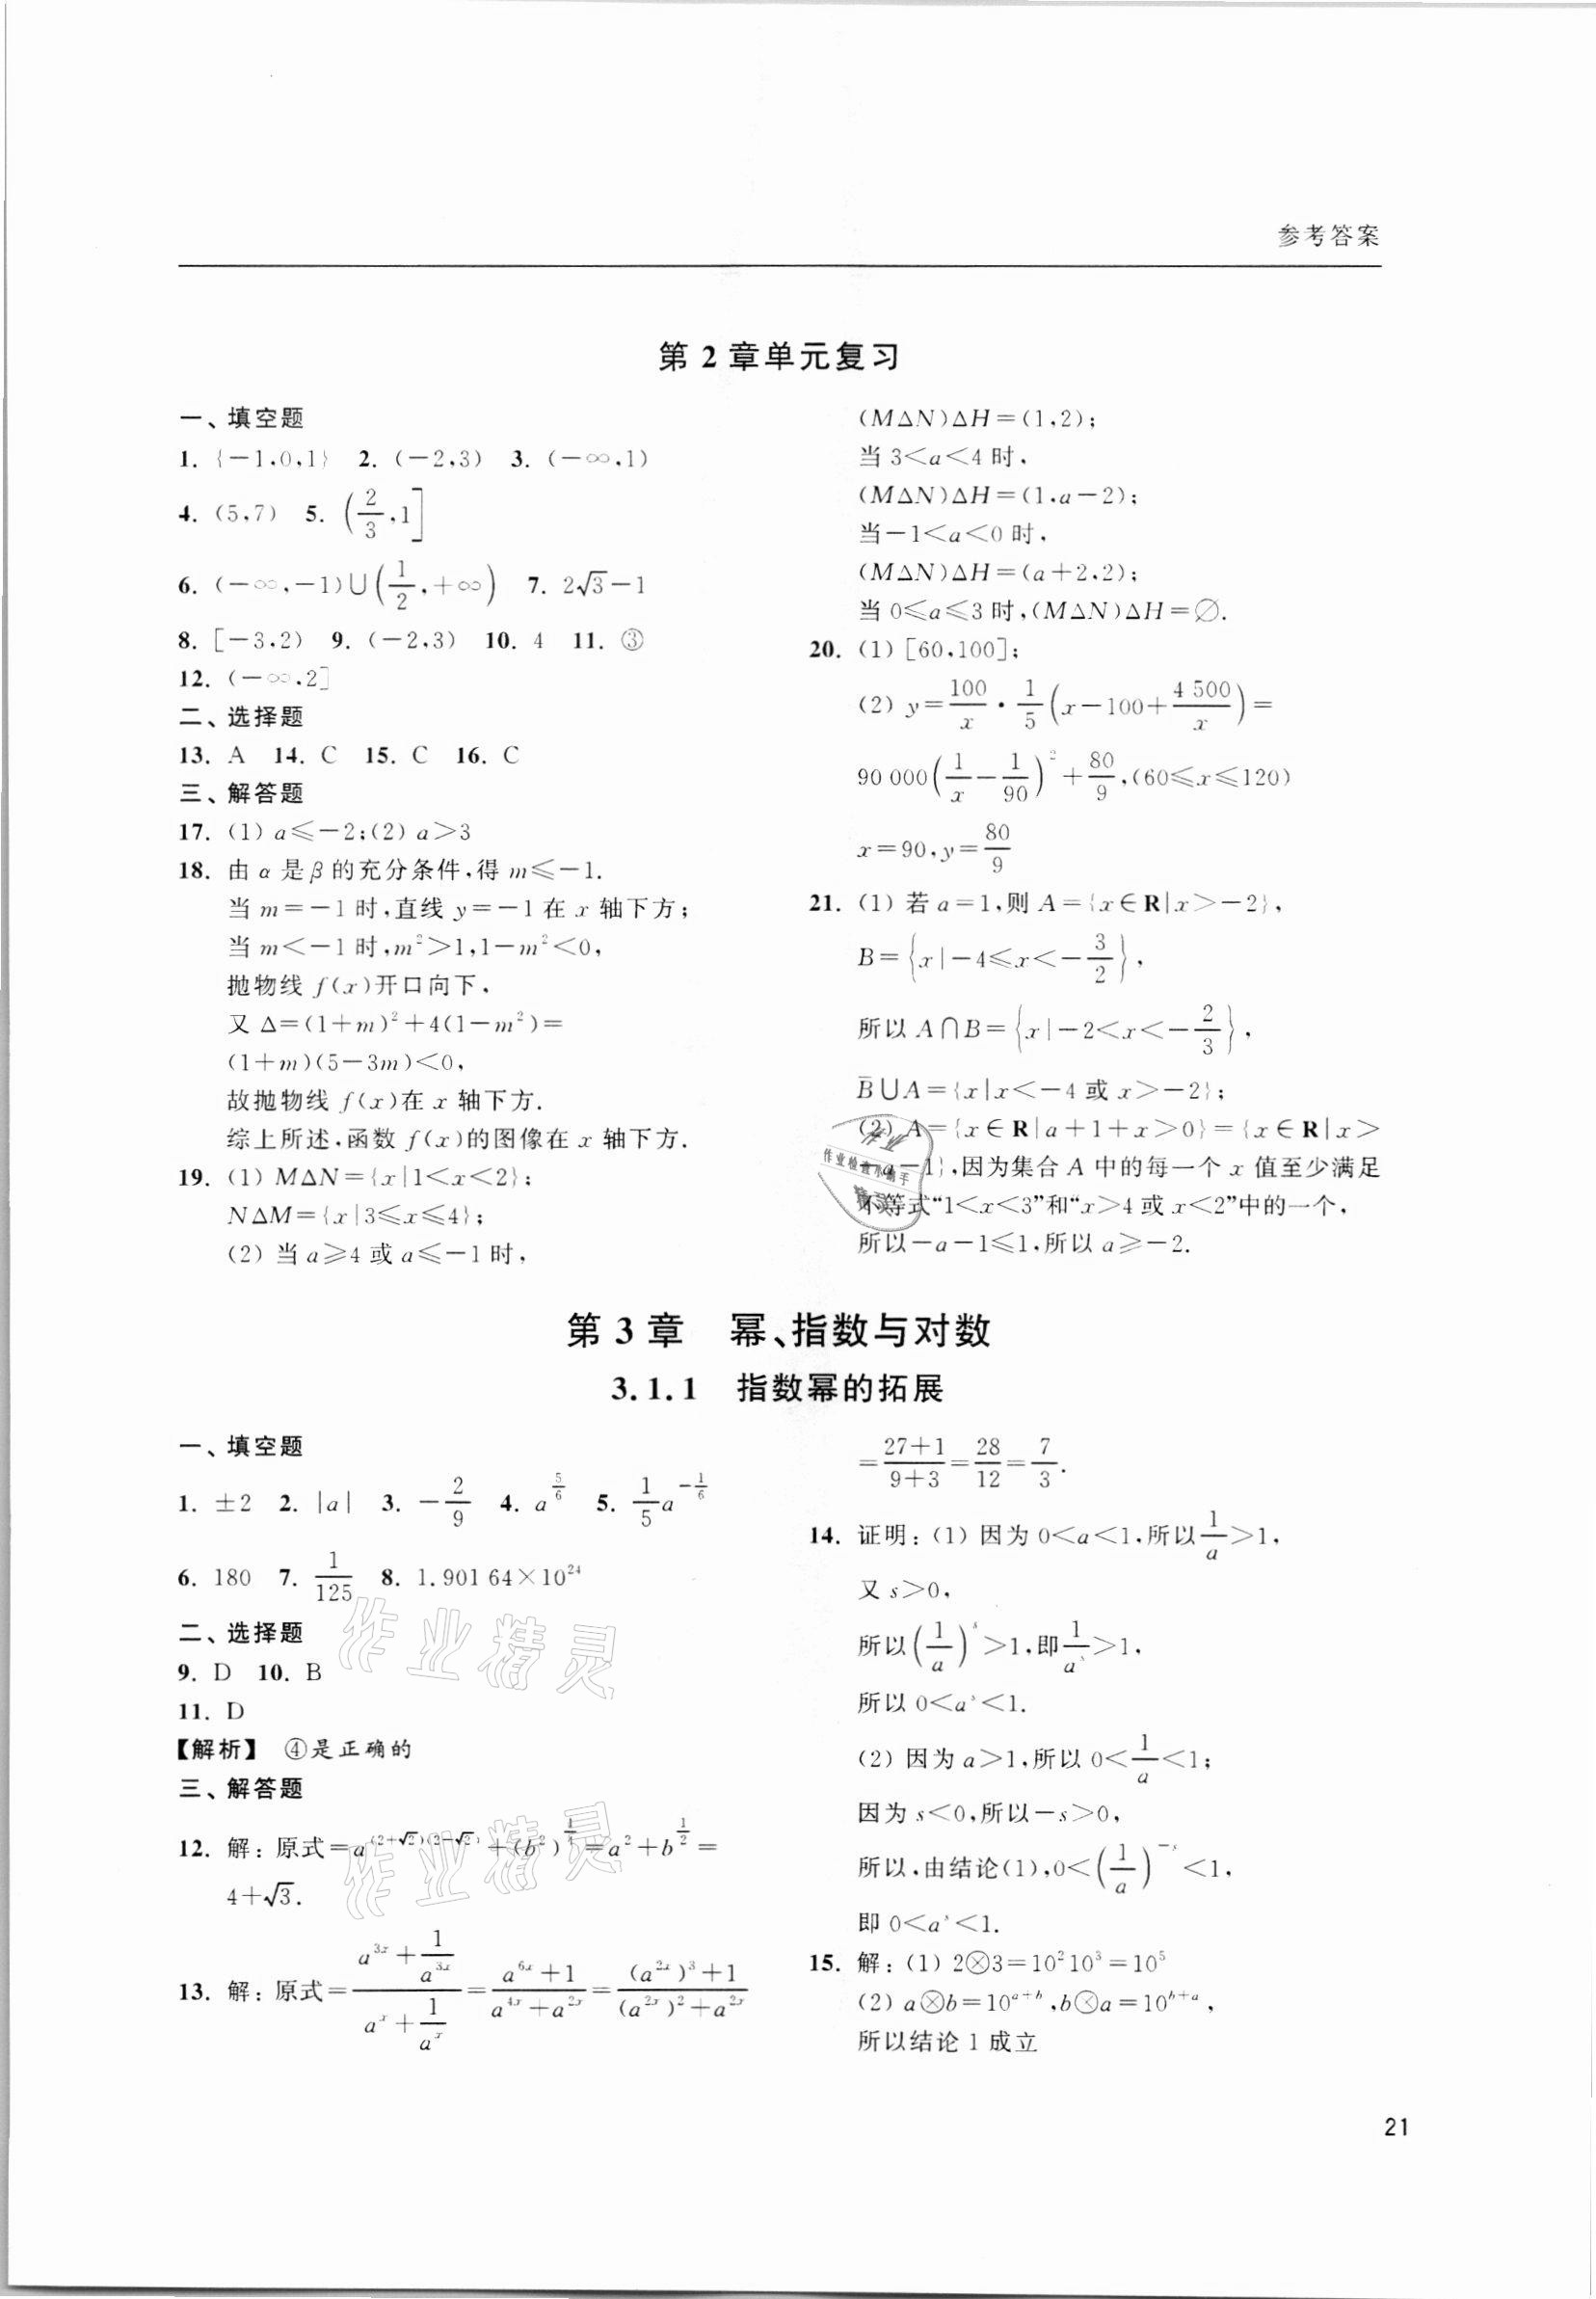 参考答案
第 2 章单元复习
一、填空题
1. {－1,0,1} 2. (－2,3) 3. (－∞,1)
4. (5,7) 5. (2/3,1]
6. (－∞,－1)∪(1/2,＋∞) 7. 2√3－1
8. [－3,2) 9. (－2,3) 10. 4 11. ③
12. (－∞,2]
二、选择题
13. A 14. C 15. C 16. C
三、解答题
17. (1) a≤－2;(2) a＞3
18. 由 α 是 β 的充分条件,得 m≤－1.
当 m＝－1 时,直线 y＝－1 在 x 轴下方;
当 m＜－1 时,m²＞1,1－m²＜0,
抛物线 f(x)开口向下,
又 Δ＝(1＋m)²＋4(1－m²)＝
(1＋m)(5－3m)＜0,
故抛物线 f(x)在 x 轴下方.
综上所述,函数 f(x)的图像在 x 轴下方.
19. (1) MΔN＝{x|1＜x＜2};
NΔM＝{x|3≤x≤4};
(2) 当 a≥4 或 a≤－1 时,
(MΔN)ΔH＝(1,2);
当 3＜a＜4 时,
(MΔN)ΔH＝(1,a－2);
当－1＜a＜0 时,
(MΔN)ΔH＝(a＋2,2);
当 0≤a≤3 时,(MΔN)ΔH＝∅.
20. (1) [60,100];
(2) y＝100/x · 1/5(x－100＋4 500/x)＝
90 000(1/x－1/90)²＋80/9,(60≤x≤120)
x＝90,y＝80/9
21. (1) 若 a＝1,则 A＝{x∈R|x＞－2},
B＝{x|－4≤x＜－3/2},
所以 A∩B＝{x|－2＜x＜－2/3},
B̅∪A＝{x|x＜－4 或 x＞－2};
(2) A＝{x∈R|a＋1＋x＞0}＝{x∈R|x＞
－a－1},因为集合 A 中的每一个 x 值至少满足
不等式“1＜x＜3”和“x＞4 或 x＜2”中的一个,
所以－a－1≤1,所以 a≥－2.
第 3 章 幂、指数与对数
3.1.1 指数幂的拓展
一、填空题
1. ±2 2. |a| 3. －2/9 4. a^(5/6) 5. 1/5 a^(－1/6)
6. 180 7. 1/125 8. 1.901 64×10²⁴
二、选择题
9. D 10. B
11. D
【解析】 ④是正确的
三、解答题
12. 解:原式＝a^((2＋√2)(2－√2))＋(b²)^(1/4)＝a²＋b^(1/2)＝
4＋√3.
13. 解:原式＝(a^(3x)＋1/a^(3x))/(a^x＋1/a^x)＝(a^(6x)＋1)/(a^(4x)＋a^(2x))＝((a^(2x))³＋1)/((a^(2x))²＋a^(2x))
＝(27＋1)/(9＋3)＝28/12＝7/3.
14. 证明:(1) 因为 0＜a＜1,所以1/a＞1,
又 s＞0,
所以(1/a)^s＞1,即1/a^s＞1,
所以 0＜a^s＜1.
(2) 因为 a＞1,所以 0＜1/a＜1;
因为 s＜0,所以－s＞0,
所以,由结论(1),0＜(1/a)^(－s)＜1,
即 0＜a^s＜1.
15. 解:(1) 2⊗3＝10²10³＝10⁵
(2) a⊗b＝10^(a＋b),b⊗a＝10^(b＋a),
所以结论 1 成立
21
作业
作业检查小助手
精灵
作业精灵
作业精灵